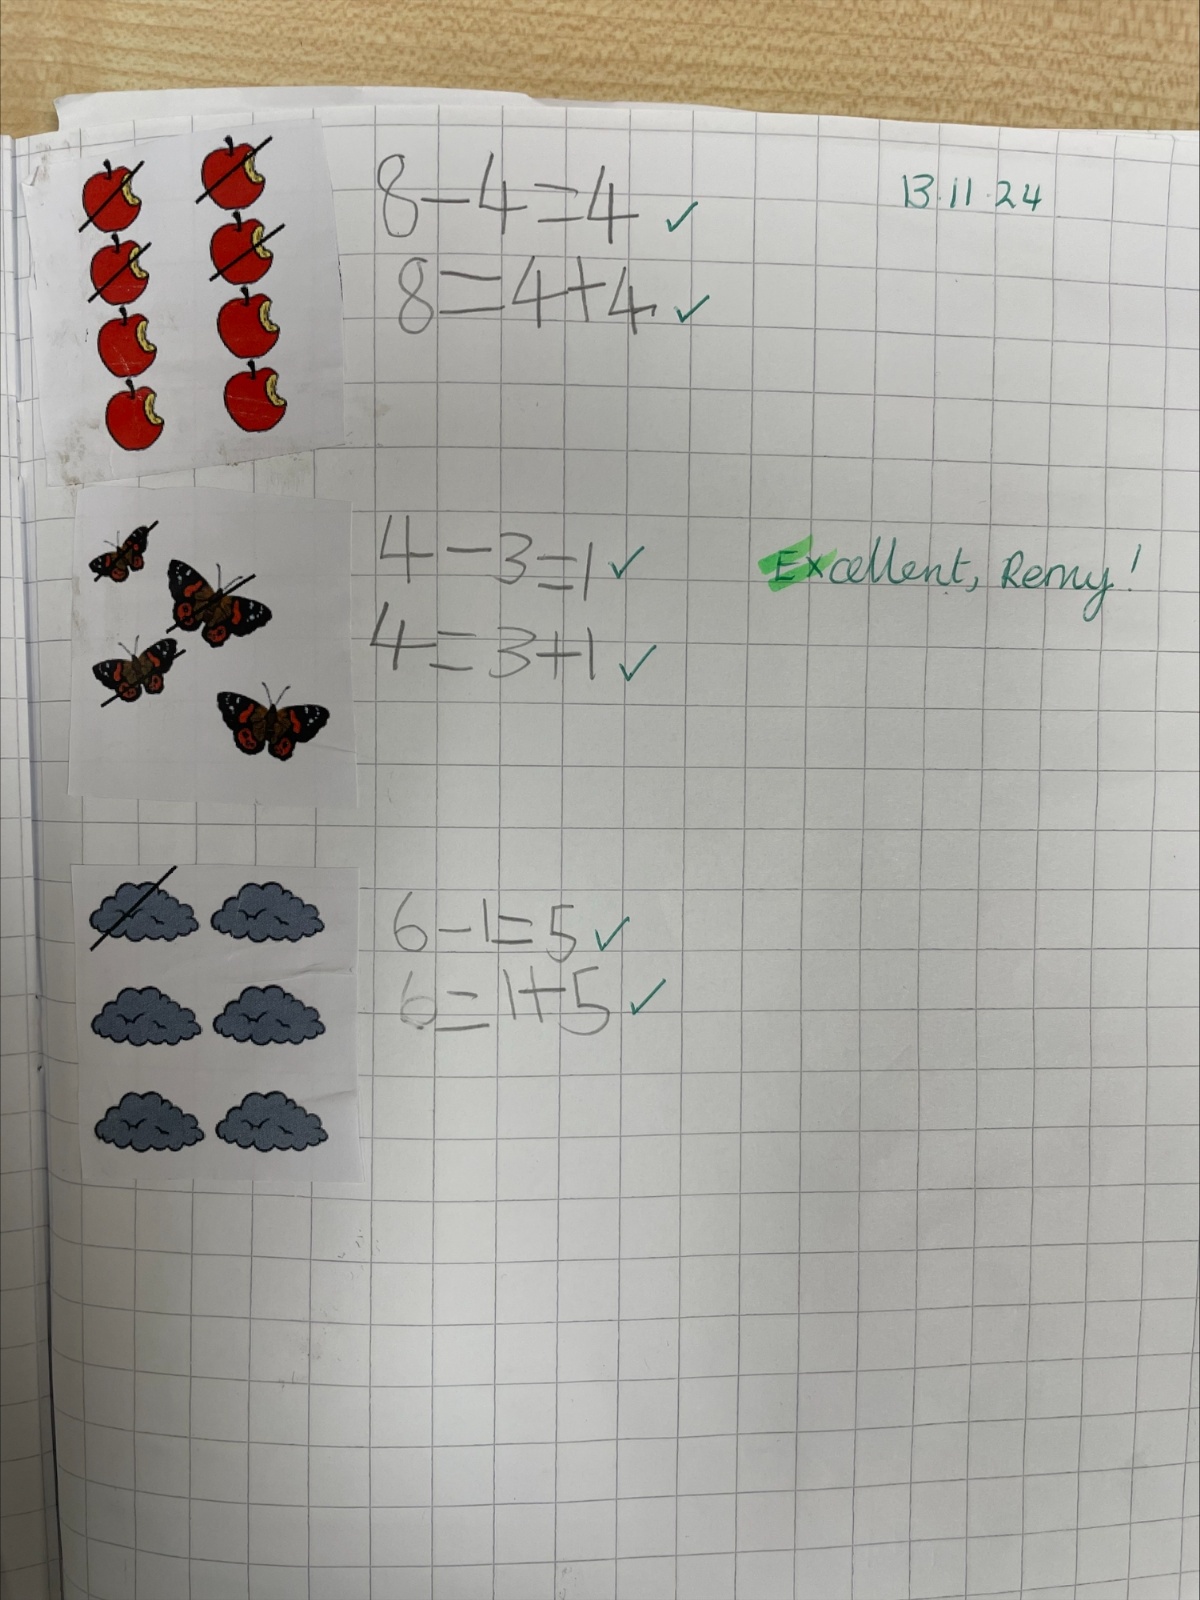 13.11.24
8-4=4 ✓
8=4+4 ✓
4-3=1 ✓
Excellent, Remy!
4=3+1 ✓
6-1=5 ✓
6=1+5 ✓